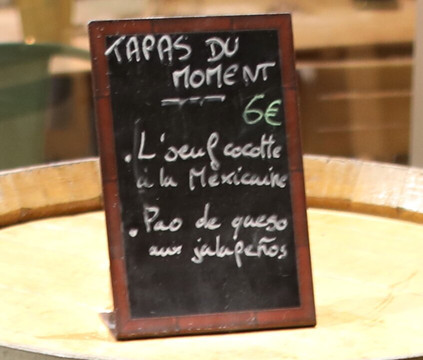 TAPAS DU
MOMENT
6€
. L'oeuf cocotte
à la Mexicaine
. Pao de queso
aux jalapeños